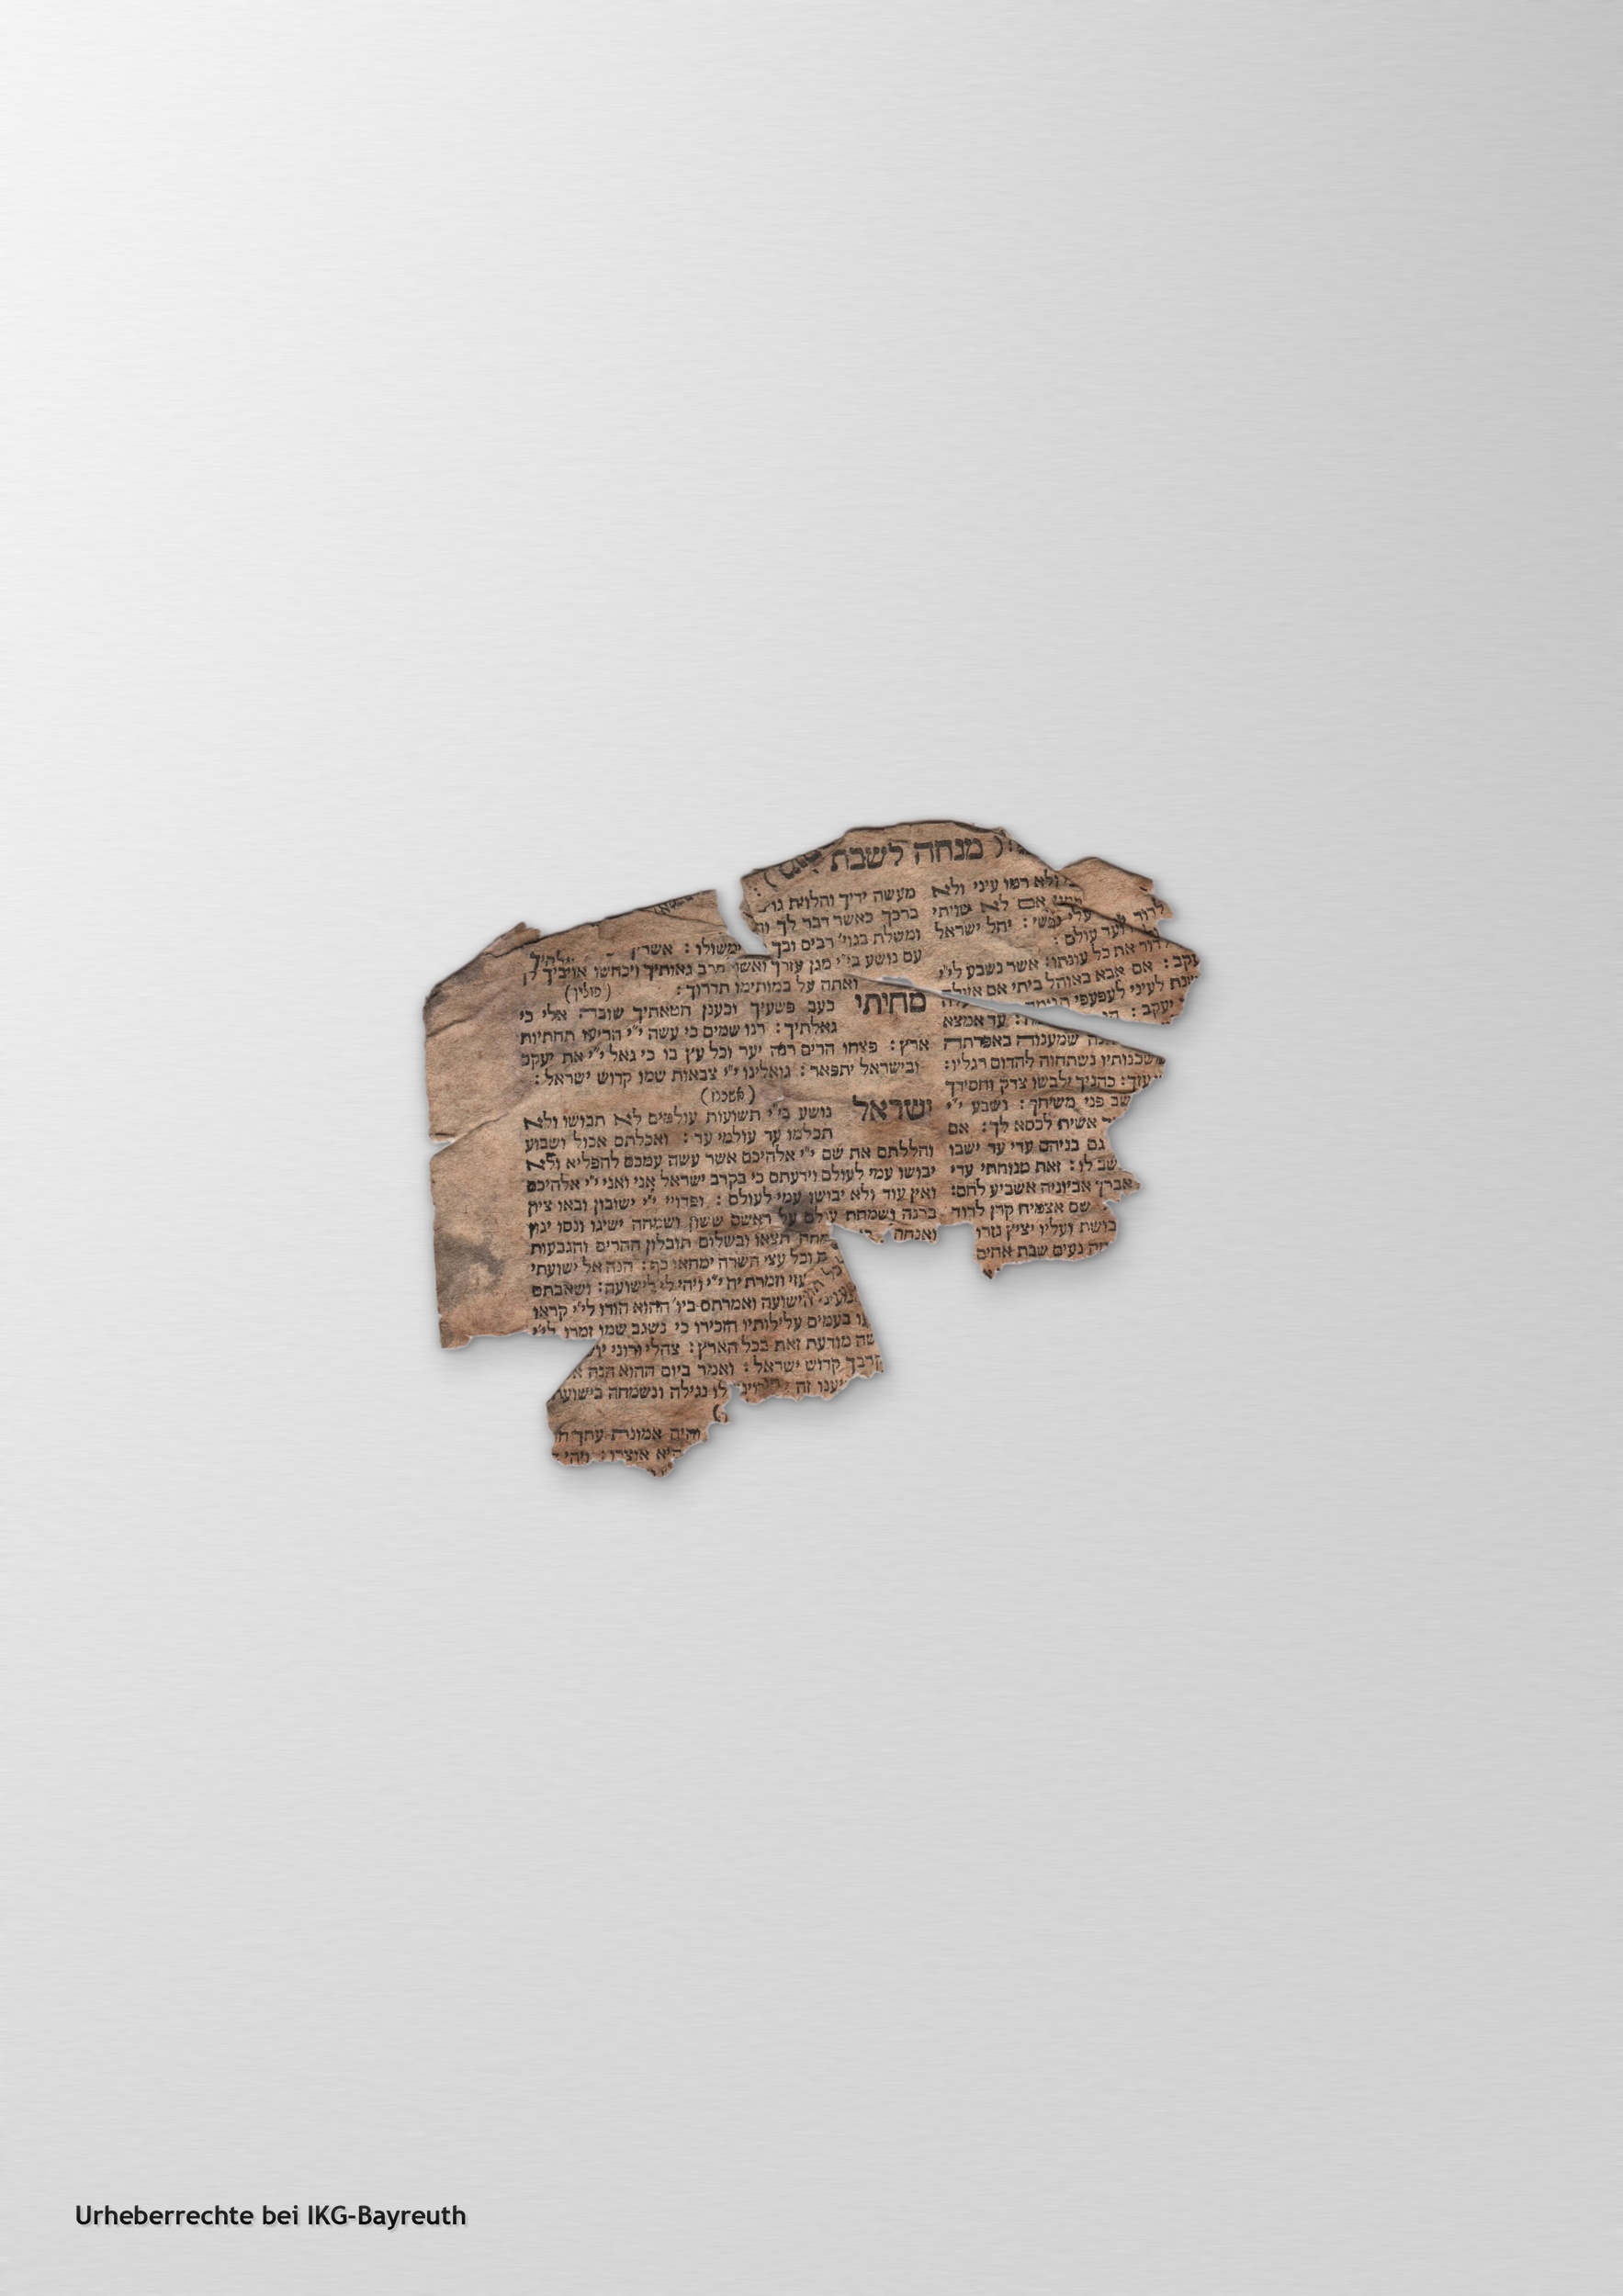 מנחה לשבת
ולא רמו עיני ולא
אם לא שויתי
עלי נפשי : יחל ישראל
ועד עולם :
לדוד את כל ענותו : אשר נשבע לי״י
יעקב : אם אבא באוהל ביתי אם אעלה
שנת לעיני לעפעפי תנומה
עד אמצא
שמענוה באפרתה
משכנותיו נשתחוה להדום רגליו :
עוזך : כהניך ילבשו צדק וחסידיך
תשב פני משיחך : נשבע י״י
אשית לכסא לך : אם
גם בניהם עדי עד ישבו
זאת מנוחתי עדי
אברך אביוניה אשביע לחם :
שם אצמיח קרן לדוד
בושת ועליו יציץ נזרו
נעים שבת אחים
מעשה ידיך והלוית גוי
ברכך כאשר דבר לך
ומשלת בגוי׳ רבים ובך ימשולו : אשריך
עם נושע בי״י מגן עזרך ואשר חרב גאותיך ויכחשו אויביך לך
ואתה על במותימו תדרוך :
(פולין)
מחיתי כעב פשעיך וכענן חטאתיך שובה אלי כי
גאלתיך : רנו שמים כי עשה י״י הריעו תחתיות
ארץ : פצחו הרים רנה יער וכל עץ בו כי גאל י״י את יעקב
ובישראל יתפאר : גואלינו י״י צבאות שמו קדוש ישראל :
(אשכנז)
ישראל נושע בי״י תשועות עולמים לא תבושו ולא
תכלמו עד עולמי עד : ואכלתם אכול ושבוע
והללתם את שם י״י אלהיכם אשר עשה עמכם להפליא ולא
יבושו עמי לעולם וידעתם כי בקרב ישראל אני ואני י״י אלהיכם
ואין עוד ולא יבושו עמי לעולם : ופדויי י״י ישובון ובאו ציון
ברנה ושמחת עולם על ראשם ששון ושמחה ישיגו ונסו יגון
ואנחה תצאו ובשלום תובלון ההרים והגבעות
וכל עצי השדה ימחאו כף : הנה אל ישועתי
עזי וזמרת יה י״י ויהי לי לישועה : ושאבתם
הישועה ואמרתם ביו׳ ההוא הודו לי״י קראו
בעמים עלילותיו הזכירו כי נשגב שמו זמרו לי״י
מודעת זאת בכל הארץ : צהלי ורוני
קדוש ישראל : ואמר ביום ההוא הנה
זה נגילה ונשמחה בישועתו
והיה אמונת עתך
היא אוצרו : ויהי
Urheberrechte bei IKG-Bayreuth